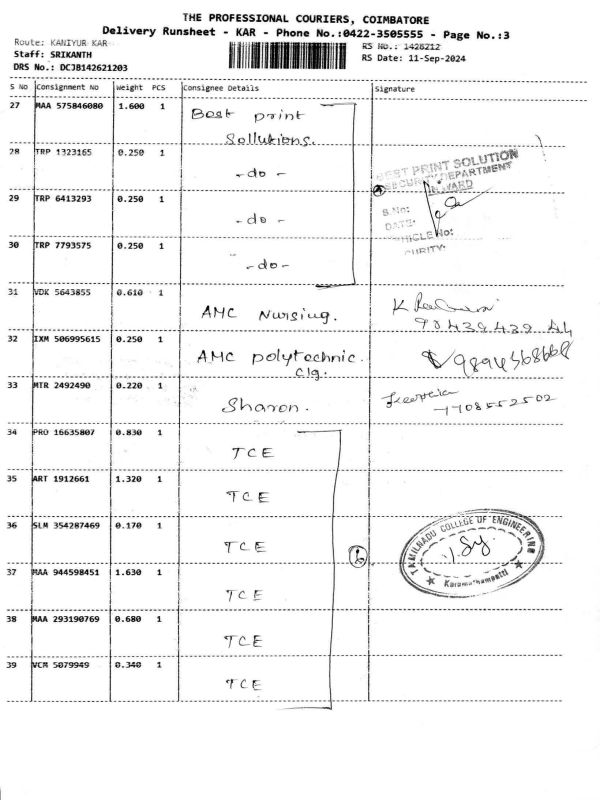 THE PROFESSIONAL COURIERS, COIMBATORE
Delivery Runsheet - KAR - Phone No.:0422-3505555 - Page No.:3
Route: KANIYUR KAR
RS No.: 1428212
Staff: SRIKANTH
RS Date: 11-Sep-2024
DRS No.: DCJB142621203
S No Consignment No Weight PCS Consignee Details Signature
27 MAA 575846080 1.600 1 Best print
Sollutions.
28 TRP 1323165 0.250 1 -do-
BEST PRINT SOLUTION
SECURITY DEPARTMENT
INWARD
29 TRP 6413293 0.250 1 -do-
S.No:
DATE:
VEHICLE No:
30 TRP 7793575 0.250 1 -do-
31 VDK 5643855 0.610 1 AMC Nursing. K
32 IXM 506995615 0.250 1 AMC polytechnic clg.
33 MTR 2492490 0.220 1 Sharon.
7708552502
34 PRO 16635807 0.830 1 TCE
35 ART 1912661 1.320 1 TCE
36 SLM 354287469 0.170 1 TCE
TAMILNADU COLLEGE OF ENGINEERING
Karamathampatti
37 MAA 944598451 1.630 1 TCE
38 MAA 293190769 0.680 1 TCE
39 VCM 5079949 0.340 1 TCE